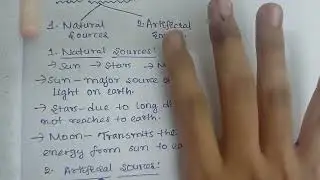 1. Natural 2. Artificial
Sources
1. Natural Sources:
→ Sun → Stars →
→ Sun - major source
light on earth.
→ Stars - due to long
not reaches to earth.
→ Moon - Transmits the
energy from sun to
2. Artificial Sources: